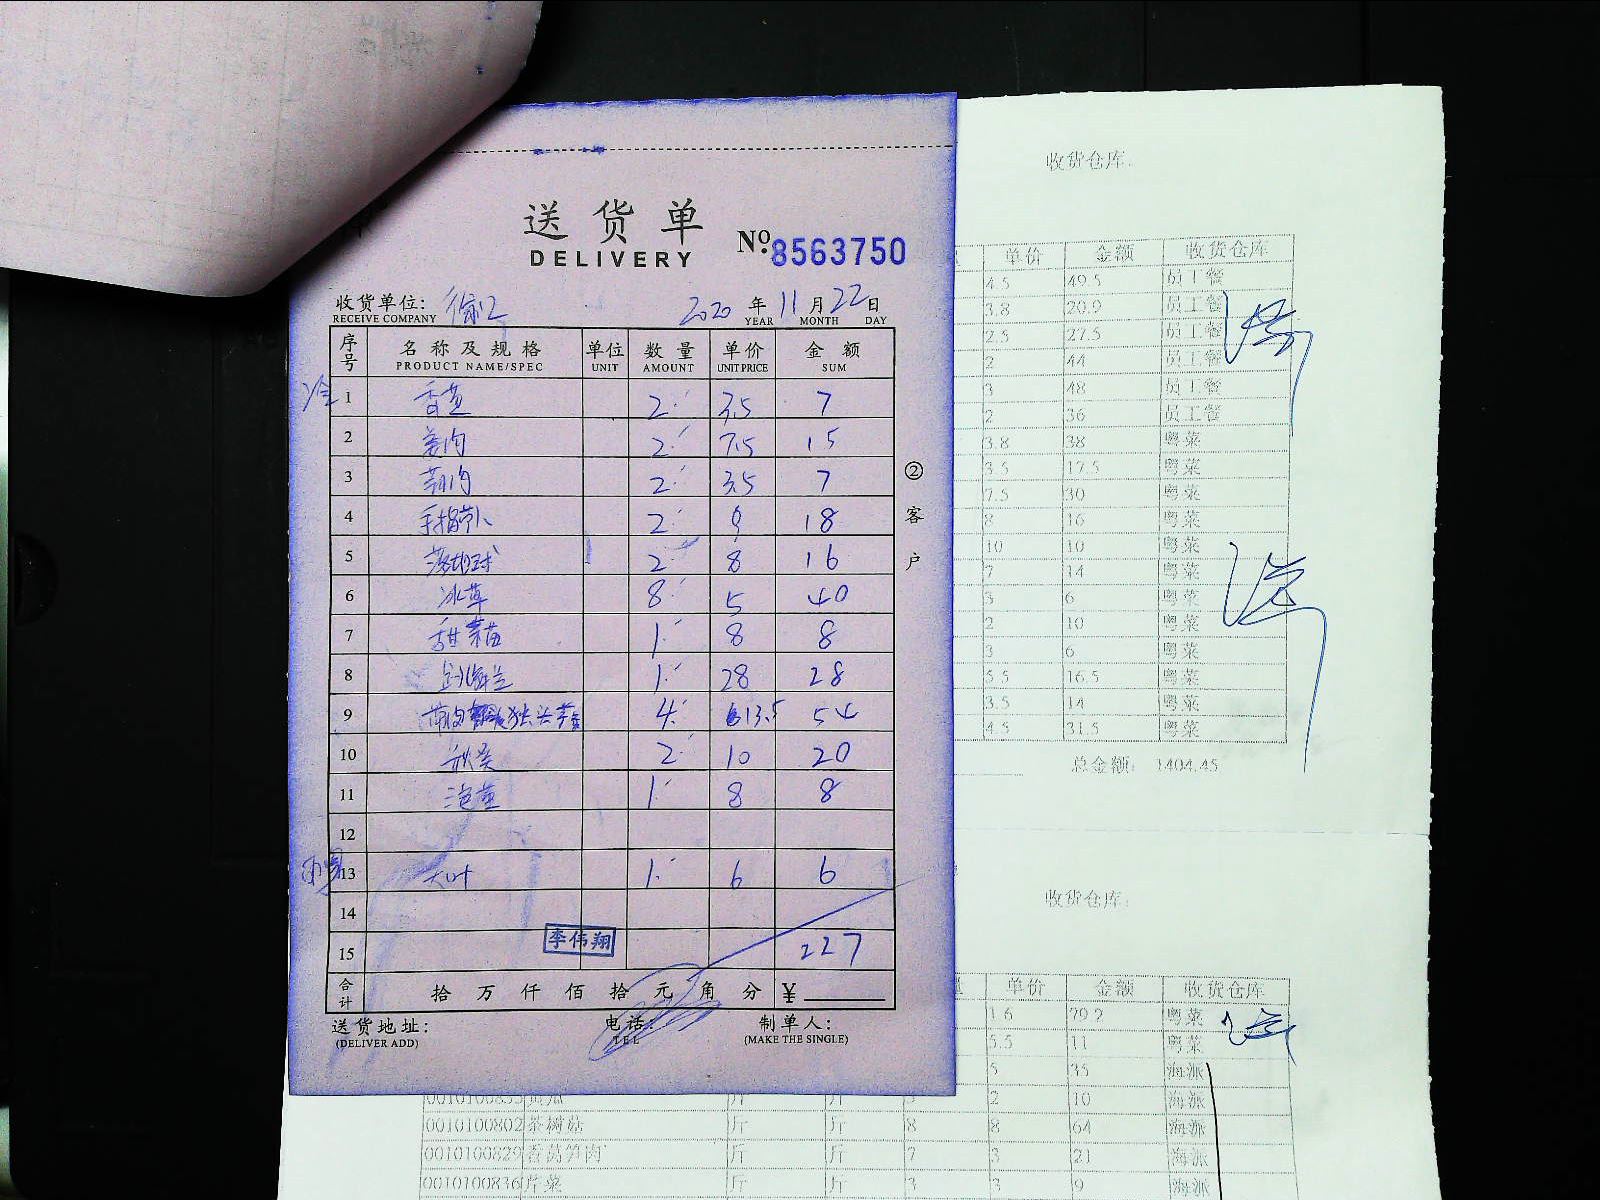 送货单
DELIVERY
№ 8563750
收货单位: 徐汇 2020 年 11 月 22 日
RECEIVE COMPANY YEAR MONTH DAY
序号 名称及规格 单位 数量 单价 金额
PRODUCT NAME/SPEC UNIT AMOUNT UNIT PRICE SUM
1 香芹 2 3.5 7
2 姜肉 2 7.5 15
3 2 3.5 7
4 手指萝卜 2 9 18
5 2 8 16
6 冰草 8 5 40
7 甜菜苗 1 8 8
8 1 28 28
9 独头 4 13.5 54
10 秋葵 2 10 20
11 1 8 8
12
13 大叶 1 6 6
14
15 李伟翔 227
合计 拾 万 仟 佰 拾 元 角 分 ¥
送货地址: 电话: 制单人:
(DELIVER ADD) TEL (MAKE THE SINGLE)
② 客户
收货仓库:
单价 金额 收货仓库
4.5 49.5 员工餐
3.8 20.9 员工餐
2.5 27.5 员工餐
2 44 员工餐
3 48 员工餐
2 36 员工餐
3.8 38 粤菜
3.5 17.5 粤菜
7.5 30 粤菜
8 16 粤菜
10 10 粤菜
7 14 粤菜
3 6 粤菜
2 10 粤菜
3 6 粤菜
5.5 16.5 粤菜
3.5 14 粤菜
4.5 31.5 粤菜
总金额: 1404.45
收货仓库:
单价 金额 收货仓库
1.6 79.2 粤菜
5.5 11 粤菜
5 35 海派
2 10 海派
0010100802 茶树菇 斤 斤 8 8 64 海派
0010100829 香莴笋肉 斤 斤 7 3 21 海派
0010100836 芹菜 斤 斤 3 3 9 海派